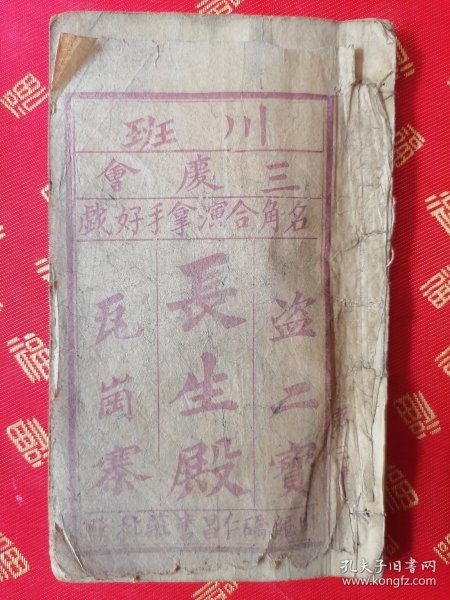 川班
三慶會
名角合演拿手好戲
盗二寶
長生殿
瓦崗寨
孔夫子旧书网
www.kongfz.com